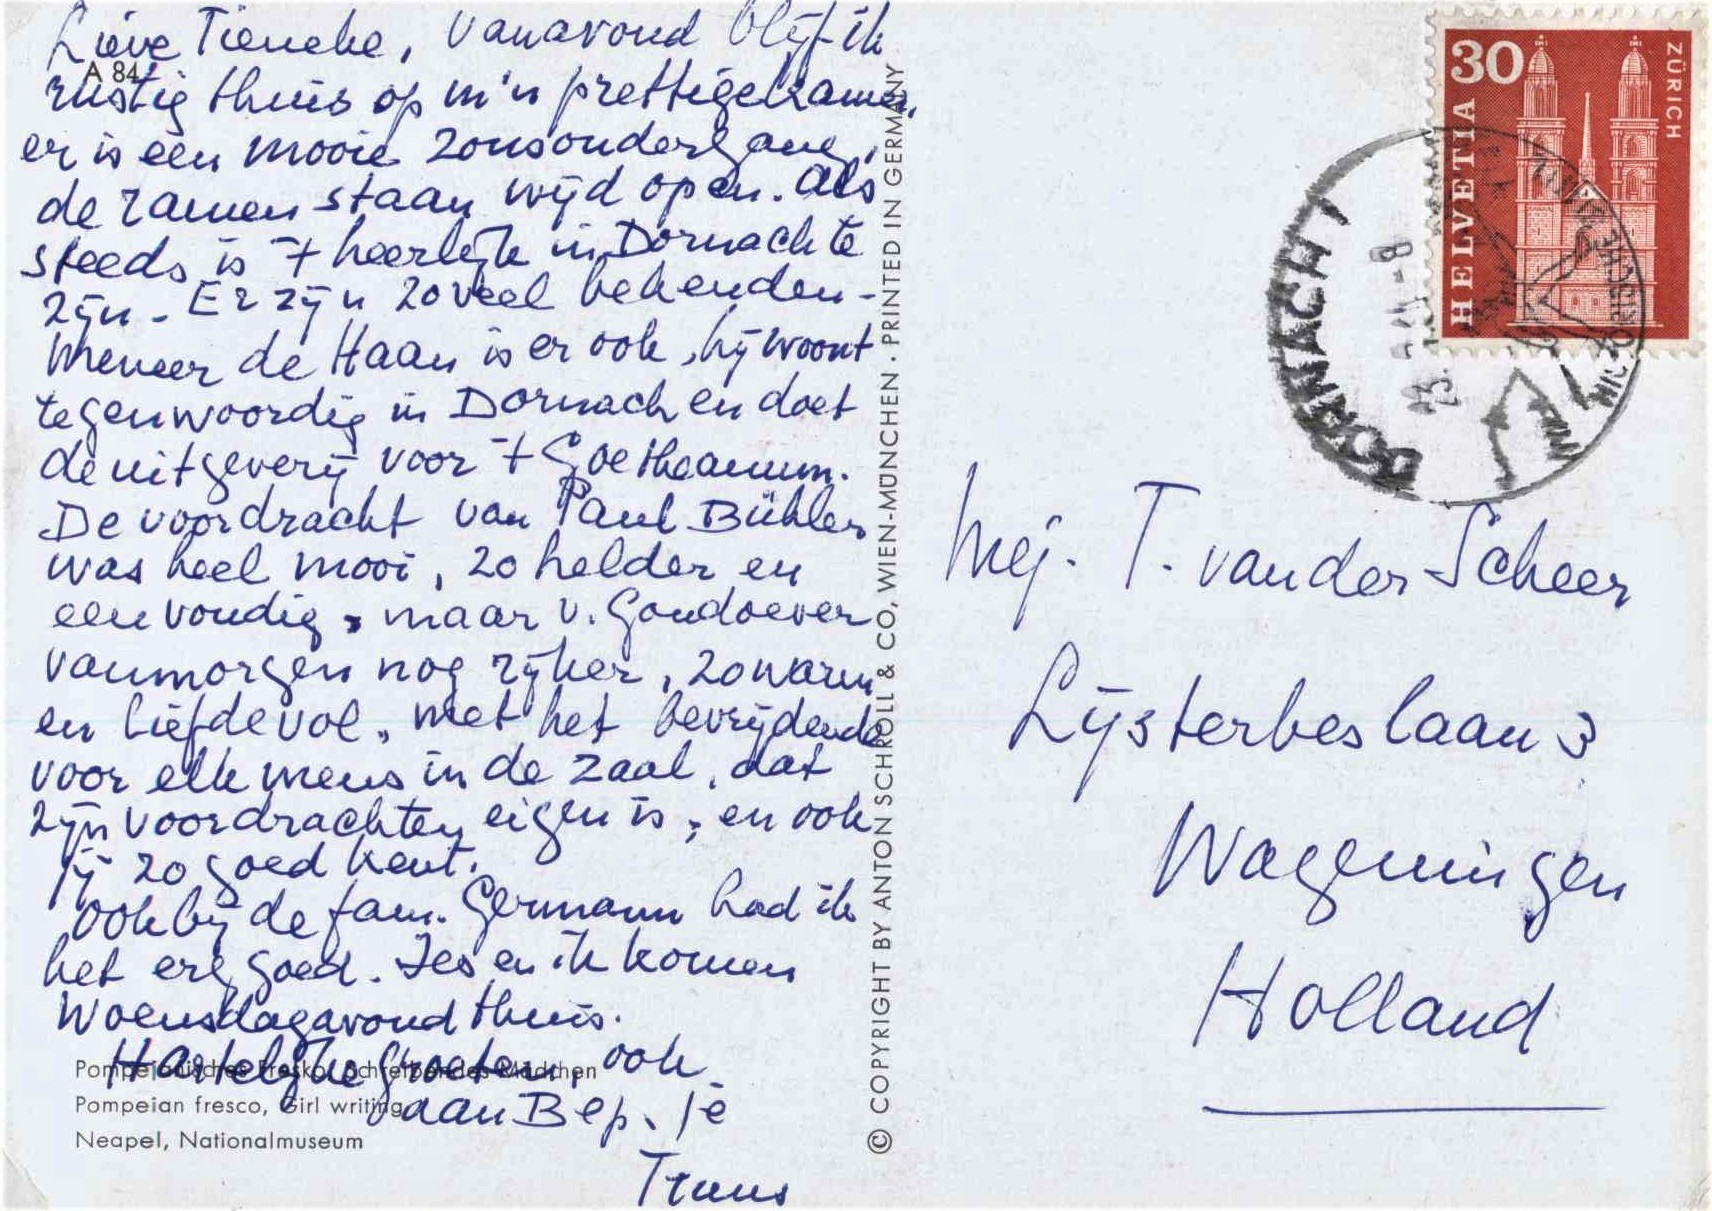 A 84
Lieve Tieneke, Vanavond blijf ik
rustig thuis op m'n prettige kamer,
er is een mooie zonsondergang,
de ramen staan wijd open. Als
steeds is 't heerlijk in Dornach te
zijn. Er zijn zoveel bekenden -
Meneer de Haan is er ook, hij woont
tegenwoordig in Dornach en doet
de uitgeverij voor 't Goetheanum.
De voordracht van Paul Bühler
was heel mooi, zo helder en
eenvoudig, maar v. Goudoever
vanmorgen nog rijker, zo warm
en liefdevol, met het bevrijdende
voor elk mens in de zaal, dat
zijn voordrachten eigen is, en ook
jij zo goed kent.
Ook bij de fam. Germann had ik
het erg goed. Jes en ik komen
Woensdagavond thuis.
Hartelijke Groeten, ook
aan Bep. je
Truus
Pompejanisches Fresko, Schreibendes Mädchen
Pompeian fresco, Girl writing
Neapel, Nationalmuseum
© COPYRIGHT BY ANTON SCHROLL & CO, WIEN-MÜNCHEN · PRINTED IN GERMANY
30
HELVETIA
ZÜRICH
DORNACH 1
Mej. T. van der Scheer
Lijsterbeslaan 3
Wageningen
Holland